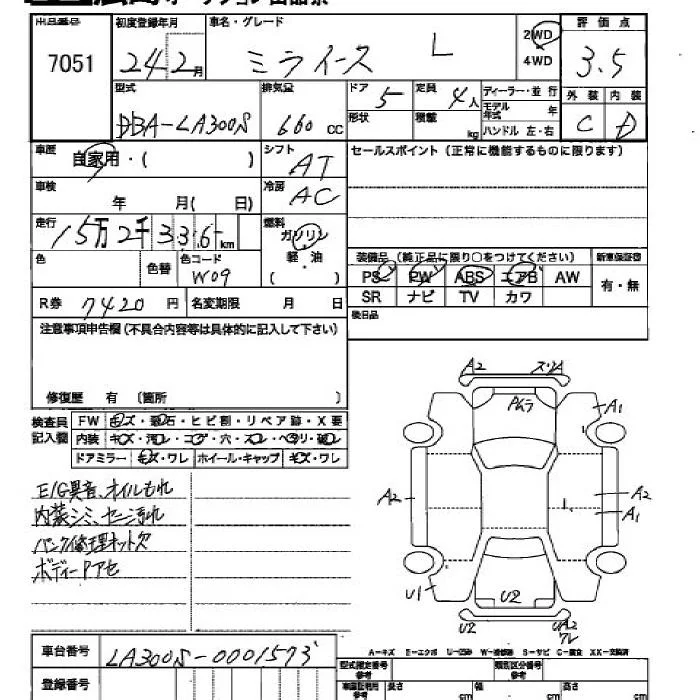 出品番号 初度登録年月 車名・グレード 評価点
7051 24 2月 ミライース L 2WD 4WD 3.5
型式 排気量 ドア 定員 ディーラー・並行 外装 内装
DBA-LA300S 660 cc 5 4人 モデル年式 年 C D
形状 積載 kg ハンドル 左・右
車歴 自家用・( ) シフト AT セールスポイント(正常に機能するものに限ります)
車検 年 月( 日) 冷房 AC
走行 15万2千336km 燃料 ガソリン
軽・油
( )
色 色替 色コード W09
装備品(純正品に限り○をつけてください) 新車保証書
PS PW ABS エアB AW 有・無
SR ナビ TV カワ
R券 7420円 名変期限 月 日 後日品
注意事項申告欄(不具合内容等は具体的に記入して下さい)
修復歴 有 〔箇所 〕
検査員記入欄 FW キズ・飛石・ヒビ割・リペア跡・X要
内装 キズ・汚レ・コゲ・穴・スレ・ベタリ・破レ
ドアミラー キズ・ワレ ホイール・キャップ キズ・ワレ
E/G異音、オイルもれ
内装シミ、シート汚れ
パンク修理キット欠
ボディーPアセ
A2 ズリA
PムラA1
A2 A2
A1
U1 U2
U2 UA2
ワレ
A-キズ E-エクボ U-凹み W-補修跡 S-サビ C-腐食 XX-交換済
車台番号 LA300S-0001573
登録番号
型式指定番号 類別区分番号
長さ cm 幅 cm 高さ cm